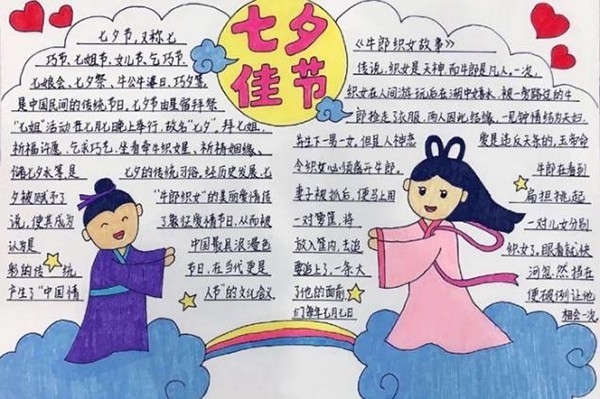 七夕佳节
七夕节,又称七
巧节、七姐节、女儿节、乞巧节、
七娘会、七夕祭、牛公牛婆日、巧夕等,
是中国民间的传统节日,七夕节由星宿拜祭
“七姐”活动在七月七晚上举行,故名“七夕”,拜七姐,
祈福许愿、乞求巧艺、坐看牵牛织女星、祈祷姻缘、
储七夕水等是 七夕的传统习俗。经历史发展,七
夕被赋予了 “牛郎织女”的美丽爱情传
说,使其成为 了象征爱情节日,从而被
认为是 中国最具浪漫色
彩的传统 节日,在当代更是
产生了“中国情 人节”的文化含义
《牛郎织女故事》
传说,织女是天神,而牛郎是凡人。一次,
织女在人间游玩后在湖中 被一旁路过的牛
郎捡走了衣服,两人因此结缘,一见钟情结为夫妇。
并生下一男一女,但且人神恋 爱是违反天条的,玉帝命
令织女必须离开牛郎。 牛郎在看到
妻子被抓后,便马上用 扁担挑起
一对箩筐,将 一对儿女分别
放入筐内,去追 织女了,眼看就快
要追上了,一条大 河忽然挡在
了他的面前, 便破例让他
们每年七月七日 相会一次。